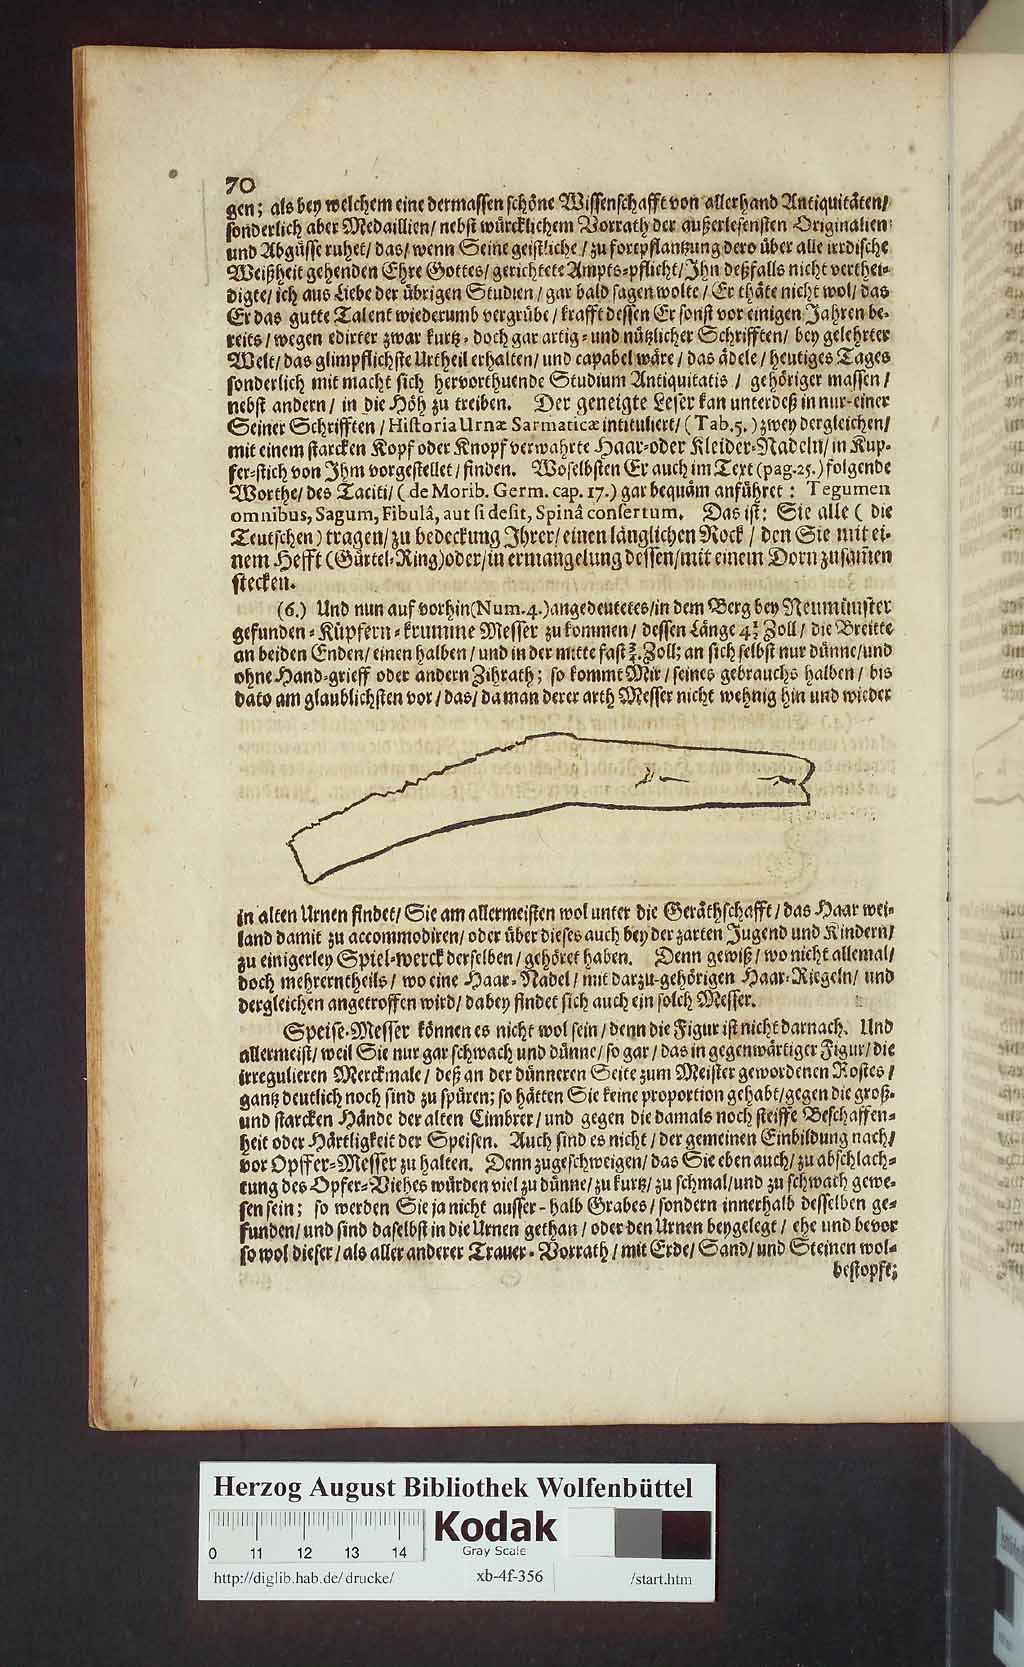 70
gen; als bey welchem eine dermassen schöne Wissenschafft von allerhand Antiquitäten/
sonderlich aber Medaillien/ nebst würcklichem Vorrath der außerlesensten Originalien
und Abgüsse ruhet/ das/ wenn Seine geistliche/ zu fortpflantzung dero über alle irrdische
Weißheit gehenden Ehre Gottes/ gerichtete Ampts-pflicht/ Ihn deßfalls nicht verthei-
digte/ ich aus Liebe der übrigen Studien/ gar bald sagen wolte/ Er thäte nicht wol/ das
Er das gutte Talent wiederumb vergrübe/ krafft dessen Er sonst vor einigen Jahren be-
reits/ wegen edirter zwar kurtz- doch gar artig- und nützlicher Schrifften/ bey gelehrter
Welt/ das glimpflichste Urtheil erhalten/ und capabel wäre/ das ädele/ heutiges Tages
sonderlich mit macht sich hervorthuende Studium Antiquitatis / gehöriger massen/
nebst andern/ in die Höh zu treiben. Der geneigte Leser kan unterdeß in nur-einer
Seiner Schrifften/ Historia Urnæ Sarmaticæ intituliert/ (Tab.5.) zwey dergleichen/
mit einem starcken Kopf oder Knopf verwahrte Haar-oder Kleider-Nadeln/ in Kup-
fer-stich von Ihm vorgestellet/ finden. Woselbsten Er auch im Text (pag.25.) folgende
Worthe/ des Taciti/ ( de Morib. Germ. cap. 17.) gar bequäm anführet: Tegumen
omnibus, Sagum, Fibulâ, aut si desit, Spinâ consertum. Das ist: Sie alle ( die
Teutschen) tragen/ zu bedeckung Ihrer/ einen länglichen Rock/ den Sie mit ei-
nem Hefft (Gürtel-Ring) oder/ in ermangelung dessen/ mit einem Dorn zusam̃en
stecken.
(6.) Und nun auf vorhin (Num.4.) angedeutetes/ in dem Berg bey Neumünster
gefunden-Küpfern-krumme Messer zu kommen/ dessen Länge 4½ Zoll/ die Breitte
an beiden Enden/ einen halben/ und in der mitte fast ¾. Zoll; an sich selbst nur dünne/ und
ohne Hand-grieff oder andern Zihrath; so kommt Mir/ seines gebrauchs halben/ bis
dato am glaublichsten vor/ das/ da man derer arth Messer nicht wehnig hin und wieder
in alten Urnen findet/ Sie am allermeisten wol unter die Geräthschafft/ das Haar wei-
land damit zu accommodiren/ oder über dieses auch bey der zarten Jugend und Kindern/
zu einigerley Spiel-werck derselben/ gehöret haben. Denn gewiß/ wo nicht allemal/
doch mehrerntheils/ wo eine Haar-Nadel/ mit darzu-gehörigen Haar-Riegeln/ und
dergleichen angetroffen wird/ dabey findet sich auch ein solch Messer.
Speise-Messer können es nicht wol sein/ denn die Figur ist nicht darnach. Und
allermeist/ weil Sie nur gar schwach und dünne/ so gar/ das in gegenwärtiger Figur/ die
irregulieren Merckmale/ deß an der dünneren Seite zum Meister gewordenen Rostes/
gantz deutlich noch sind zu spüren; so hätten Sie keine proportion gehabt/ gegen die groß-
und starcken Hände der alten Cimbrer/ und gegen die damals noch steiffe Beschaffen-
heit oder Härtligkeit der Speisen. Auch sind es nicht/ der gemeinen Einbildung nach/
vor Opffer-Messer zu halten. Denn zugeschweigen/ das Sie eben auch/ zu abschlach-
tung des Opfer-Viehes würden viel zu dünne/ zu kurtz/ zu schmal/ und zu schwach gewe-
sen sein; so werden Sie ja nicht ausser-halb Grabes/ sondern innerhalb desselben ge-
funden/ und sind daselbst in die Urnen gethan/ oder den Urnen beygelegt/ ehe und bevor
so wol dieser/ als aller anderer Trauer-Vorrath/ mit Erde/ Sand/ und Steinen wol-
bestopft;
Herzog August Bibliothek Wolfenbüttel
0 11 12 13 14
Kodak
Gray Scale
http://diglib.hab.de/drucke/ xb-4f-356 /start.htm